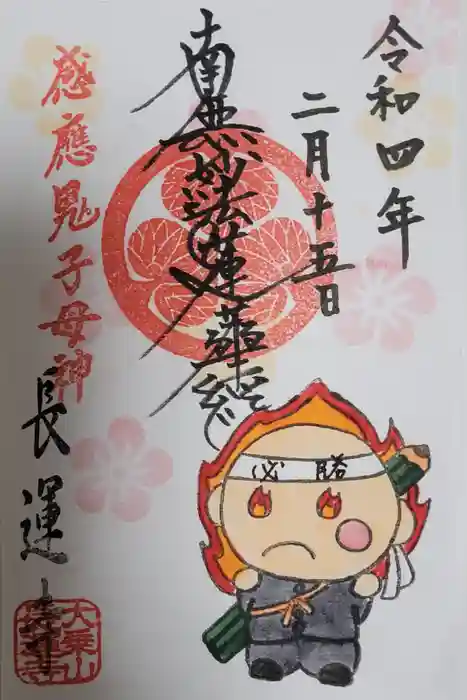 令和四年
二月十五日
南無妙法蓮華経
感應鬼子母神
長運寺
必勝
大乗山
長運寺